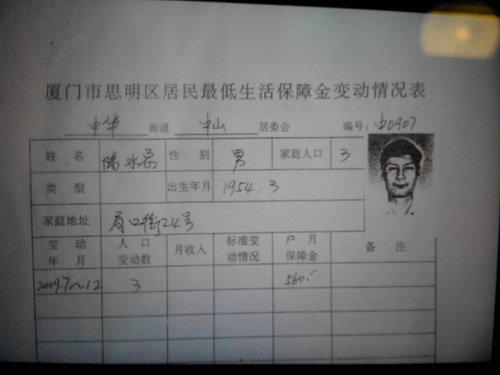 厦门市思明区居民最低生活保障金变动情况表
中华 街道 中山 居委会 编号: 中0907
姓名 陈水总 性别 男 家庭人口 3
类型 出生年月 1954.3
家庭地址 局口街24号
变动年月 人口变动数 月收人 标准变动情况 户月保障金 备注
2009.7~12 3